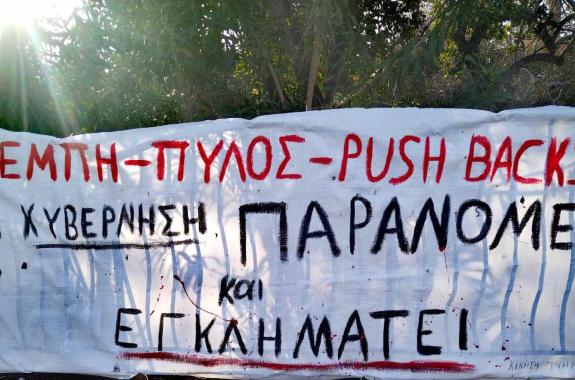 ΕΜΠΗ-ΠΥΛΟΣ-PUSH BACKS
ΧΥΒΕΡΝΗΣΗ ΠΑΡΑΝΟΜΕ
και
ΕΓΚΛΗΜΑΤΕΙ
ΚΙΝΗΣΗ ΜΝΗΜ